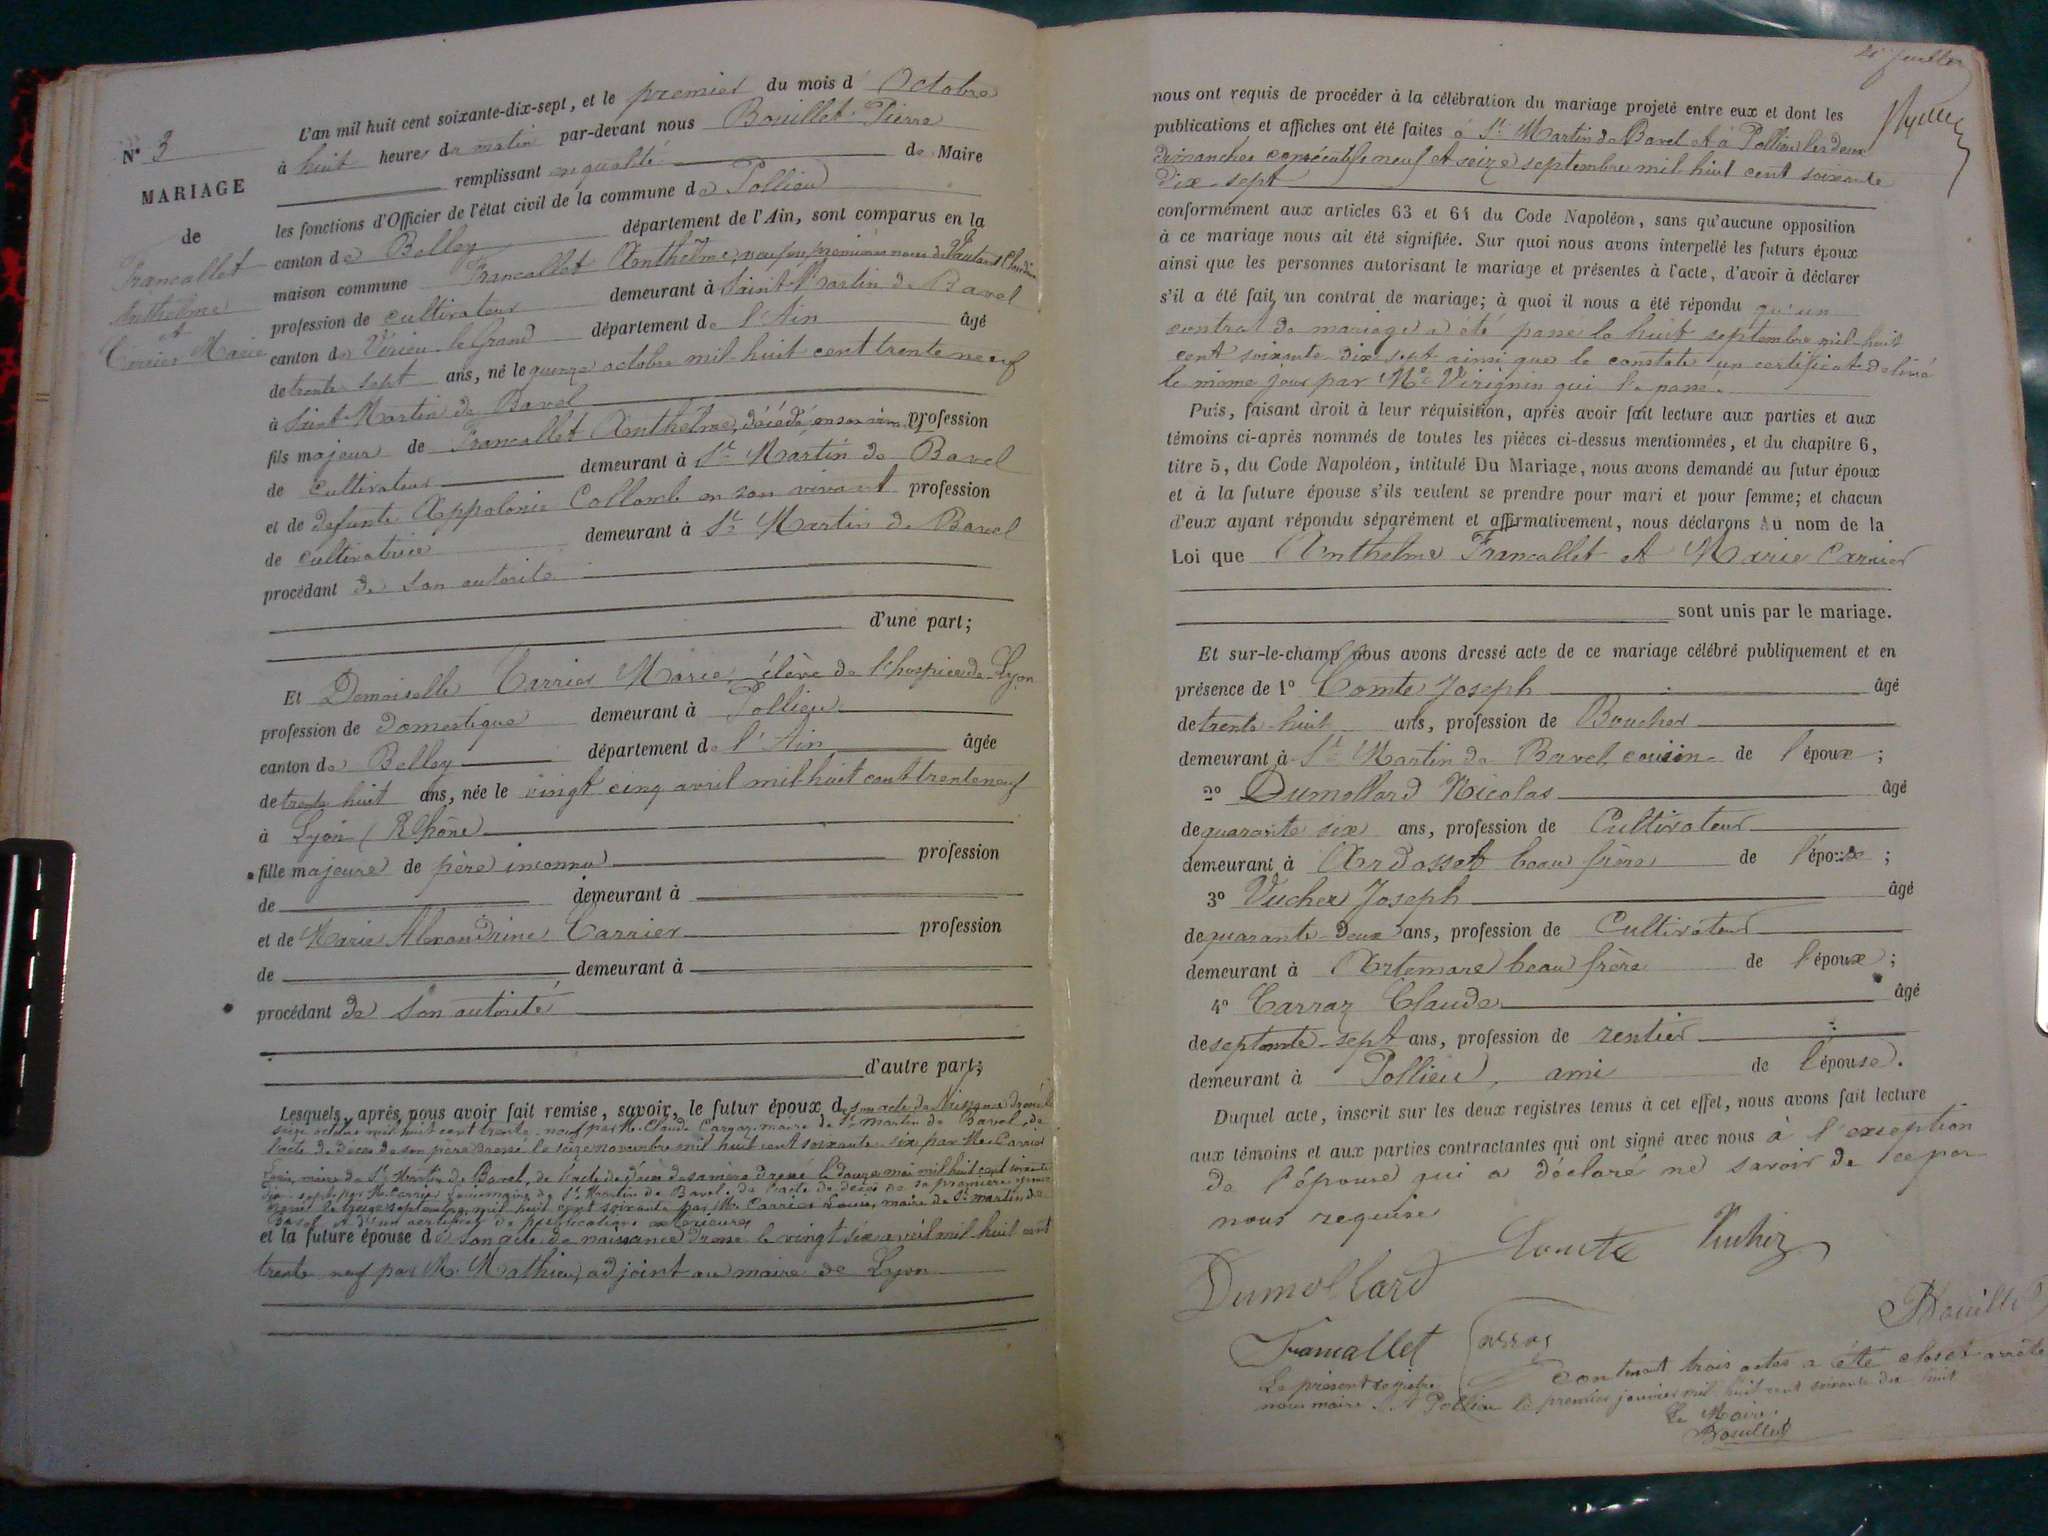 N° 3
MARIAGE
de
Francallet
Anthelme
et
Carrier Marie
L'an mil huit cent soixante-dix-sept, et le premier du mois d' Octobre
à huit heures du matin par-devant nous Bouillet Pierre
remplissant en qualité de Maire
les fonctions d'Officier de l'état civil de la commune de Pollieu
canton de Belley département de l'Ain, sont comparus en la
maison commune Francallet Anthelme, veuf en premières noces de Claudine
profession de cultivateur demeurant à Saint Martin de Bavel
canton de Virieu le Grand département de l'Ain âgé
de trente sept ans, né le quinze octobre mil huit cent trente neuf
à Saint Martin de Bavel
fils majeur de Francallet Anthelme, décédé, en son vivant profession
de cultivateur demeurant à St Martin de Bavel
et de defunte Appolonie Collomb en son vivant profession
de cultivatrice demeurant à St Martin de Bavel
procédant de son autorité
d'une part;
Et Demoiselle Carrier Marie, élève de l'hospice de Lyon
profession de domestique demeurant à Pollieu
canton de Belley département de l'Ain âgée
de trente huit ans, née le vingt cinq avril mil huit cent trente neuf
à Lyon (Rhône)
fille majeure de père inconnu profession
de demeurant à
et de Marie Alexandrine Carrier profession
de demeurant à
procédant de son autorité
d'autre part;
Lesquels, après nous avoir fait remise, savoir, le futur époux de son acte de Naissance dressé le
seize octobre mil huit cent trente neuf par M. Claude maire de St martin de Bavel, de
l'acte de décès de son père dressé le seize novembre mil huit cent soixante six par M. Carrier
Louis, maire de St Martin de Bavel, de l'acte de décès de sa mère dressé le douze mai mil huit cent soixante
dix sept par M. Carrier Louis maire de St Martin de Bavel, de l'acte de décès de sa première épouse
dressé le septembre mil huit cent soixante par M. Carrier Louis, maire de St martin de
Bavel et d'un certificat de publications
et la future épouse de son acte de naissance dressé le vingt six avril mil huit cent
trente neuf par M. Mathieu, adjoint au maire de Lyon
nous ont requis de procéder à la célébration du mariage projeté entre eux et dont les
publications et affiches ont été faites à St Martin de Bavel et à Pollieu les deux
dimanches consécutifs neuf et seize septembre mil huit cent soixante
dix-sept
conformément aux articles 63 et 64 du Code Napoléon, sans qu'aucune opposition
à ce mariage nous ait été signifiée. Sur quoi nous avons interpellé les futurs époux
ainsi que les personnes autorisant le mariage et présentes à l'acte, d'avoir à déclarer
s'il a été fait un contrat de mariage; à quoi il nous a été répondu qu'un
contrat de mariage a été passé le huit septembre mil huit
cent soixante dix sept ainsi que le constate un certificat délivré
le même jour par Me Virignin qui l'a passé.
Puis, faisant droit à leur réquisition, après avoir fait lecture aux parties et aux
témoins ci-après nommés de toutes les pièces ci-dessus mentionnées, et du chapitre 6,
titre 5, du Code Napoléon, intitulé Du Mariage, nous avons demandé au futur époux
et à la future épouse s'ils veulent se prendre pour mari et pour femme; et chacun
d'eux ayant répondu séparément et affirmativement, nous déclarons Au nom de la
Loi que Anthelme Francallet et Marie Carrier
sont unis par le mariage.
Et sur-le-champ nous avons dressé acte de ce mariage célébré publiquement et en
présence de 1° Comte Joseph âgé
de trente-huit ans, profession de Boucher
demeurant à St Martin de Bavel cousin de l'époux;
2° Dumollard Nicolas âgé
de quarante six ans, profession de Cultivateur
demeurant à Ardosset beau frère de l'époux;
3° Vucher Joseph âgé
de quarante-deux ans, profession de Cultivateur
demeurant à Artemare beau frère de l'époux;
4° Carraz Claude âgé
de septante-sept ans, profession de rentier
demeurant à Pollieu, ami de l'épouse.
Duquel acte, inscrit sur les deux registres tenus à cet effet, nous avons fait lecture
aux témoins et aux parties contractantes qui ont signé avec nous à l'exception
de l'épouse qui a déclaré ne savoir de ce par
nous requise
Dumollard Comte Vuchez
Francallet Carraz Bouillet
Le présent registre contenant trois actes a été clos et arrêté
nous maire. A Pollieu le premier janvier mil huit cent soixante dix huit
Le Maire
Bouillet